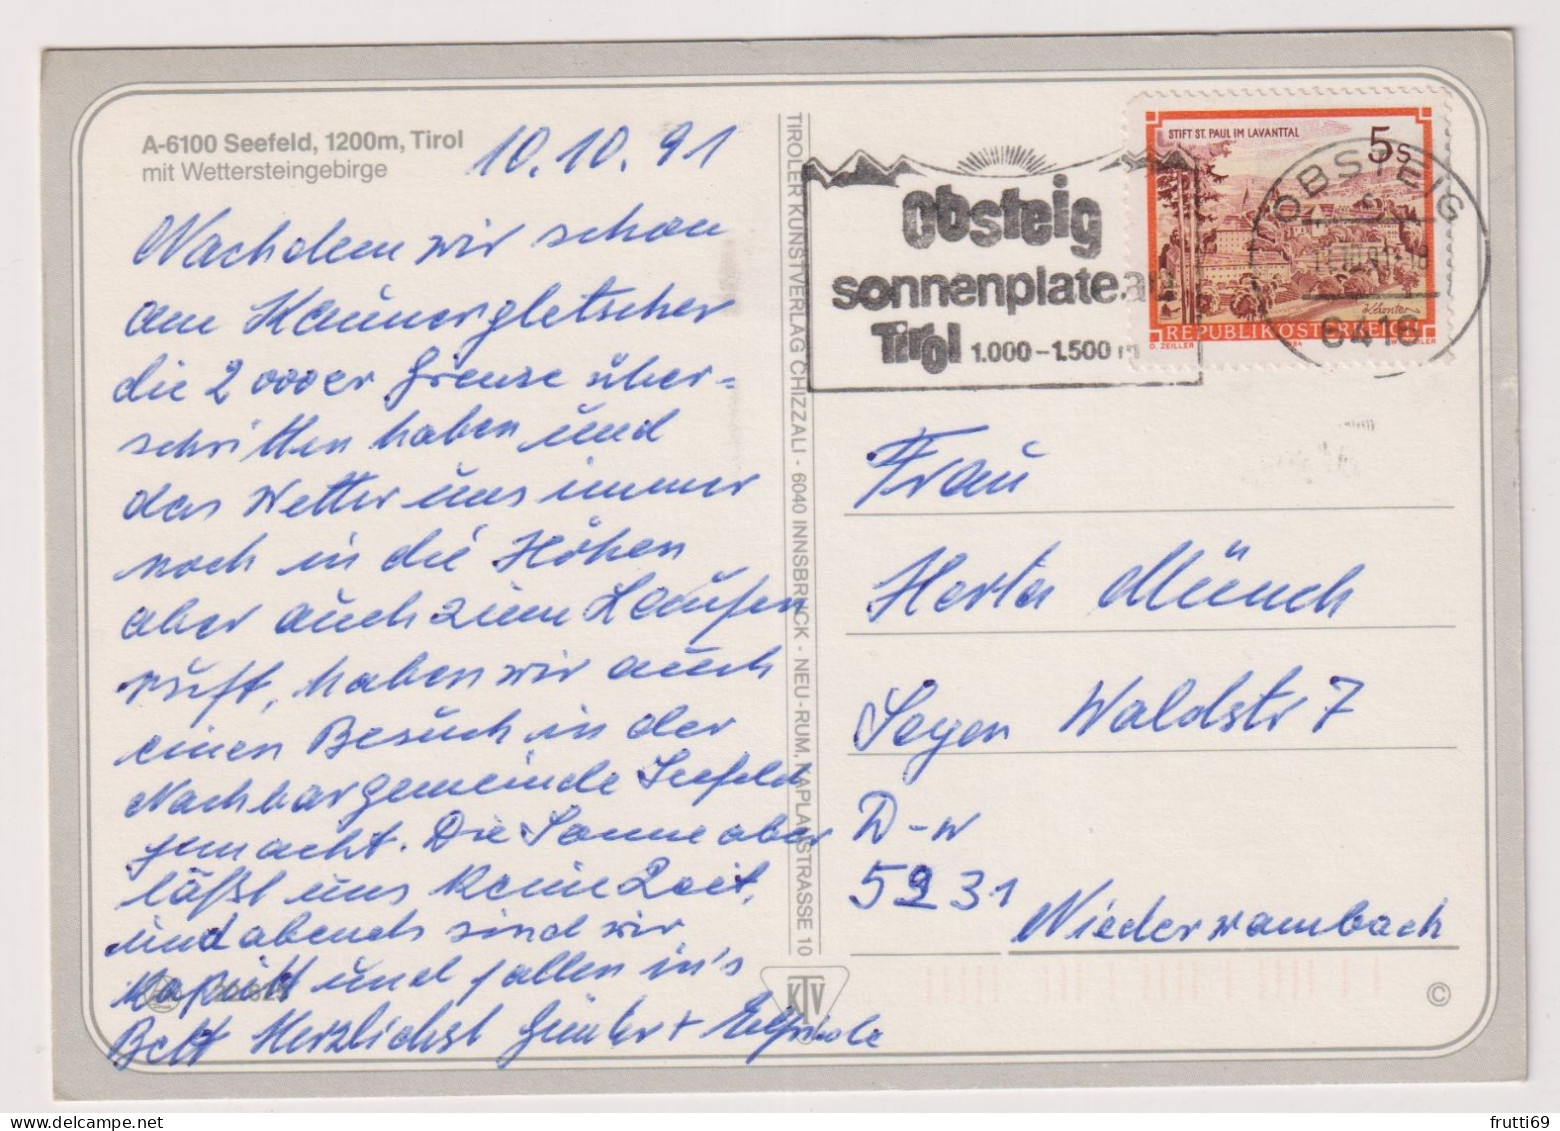 A-6100 Seefeld, 1200m, Tirol
mit Wettersteingebirge
10.10.91
Nachdem wir schon
am Kaunergletscher
die 2000er Grenze über=
schritten haben und
das Wetter uns immer
noch in die Höhen
aber auch zum Laufen
ruft, haben wir auch
einen Besuch in der
Nachbargemeinde Seefeld
gemacht. Die Sonne aber
läßt uns keine Zeit,
und abends sind wir
kaputt und fallen in's
Bett Herzlichst Günter + Elfriede
TIROLER KUNSTVERLAG CHIZZALI - 6040 INNSBRUCK - NEU-RUM, KAPLANSTRASSE 10
KTV
Obsteig
sonnenplateau
Tirol 1.000-1.500 m
STIFT ST. PAUL IM LAVANTTAL
5s
REPUBLIK ÖSTERREICH
O. ZEILLER
OBSTEIG
6416
Frau
Herta Münch
Seyen Waldstr 7
D-W
5231
Niederwambach
©
frutti69